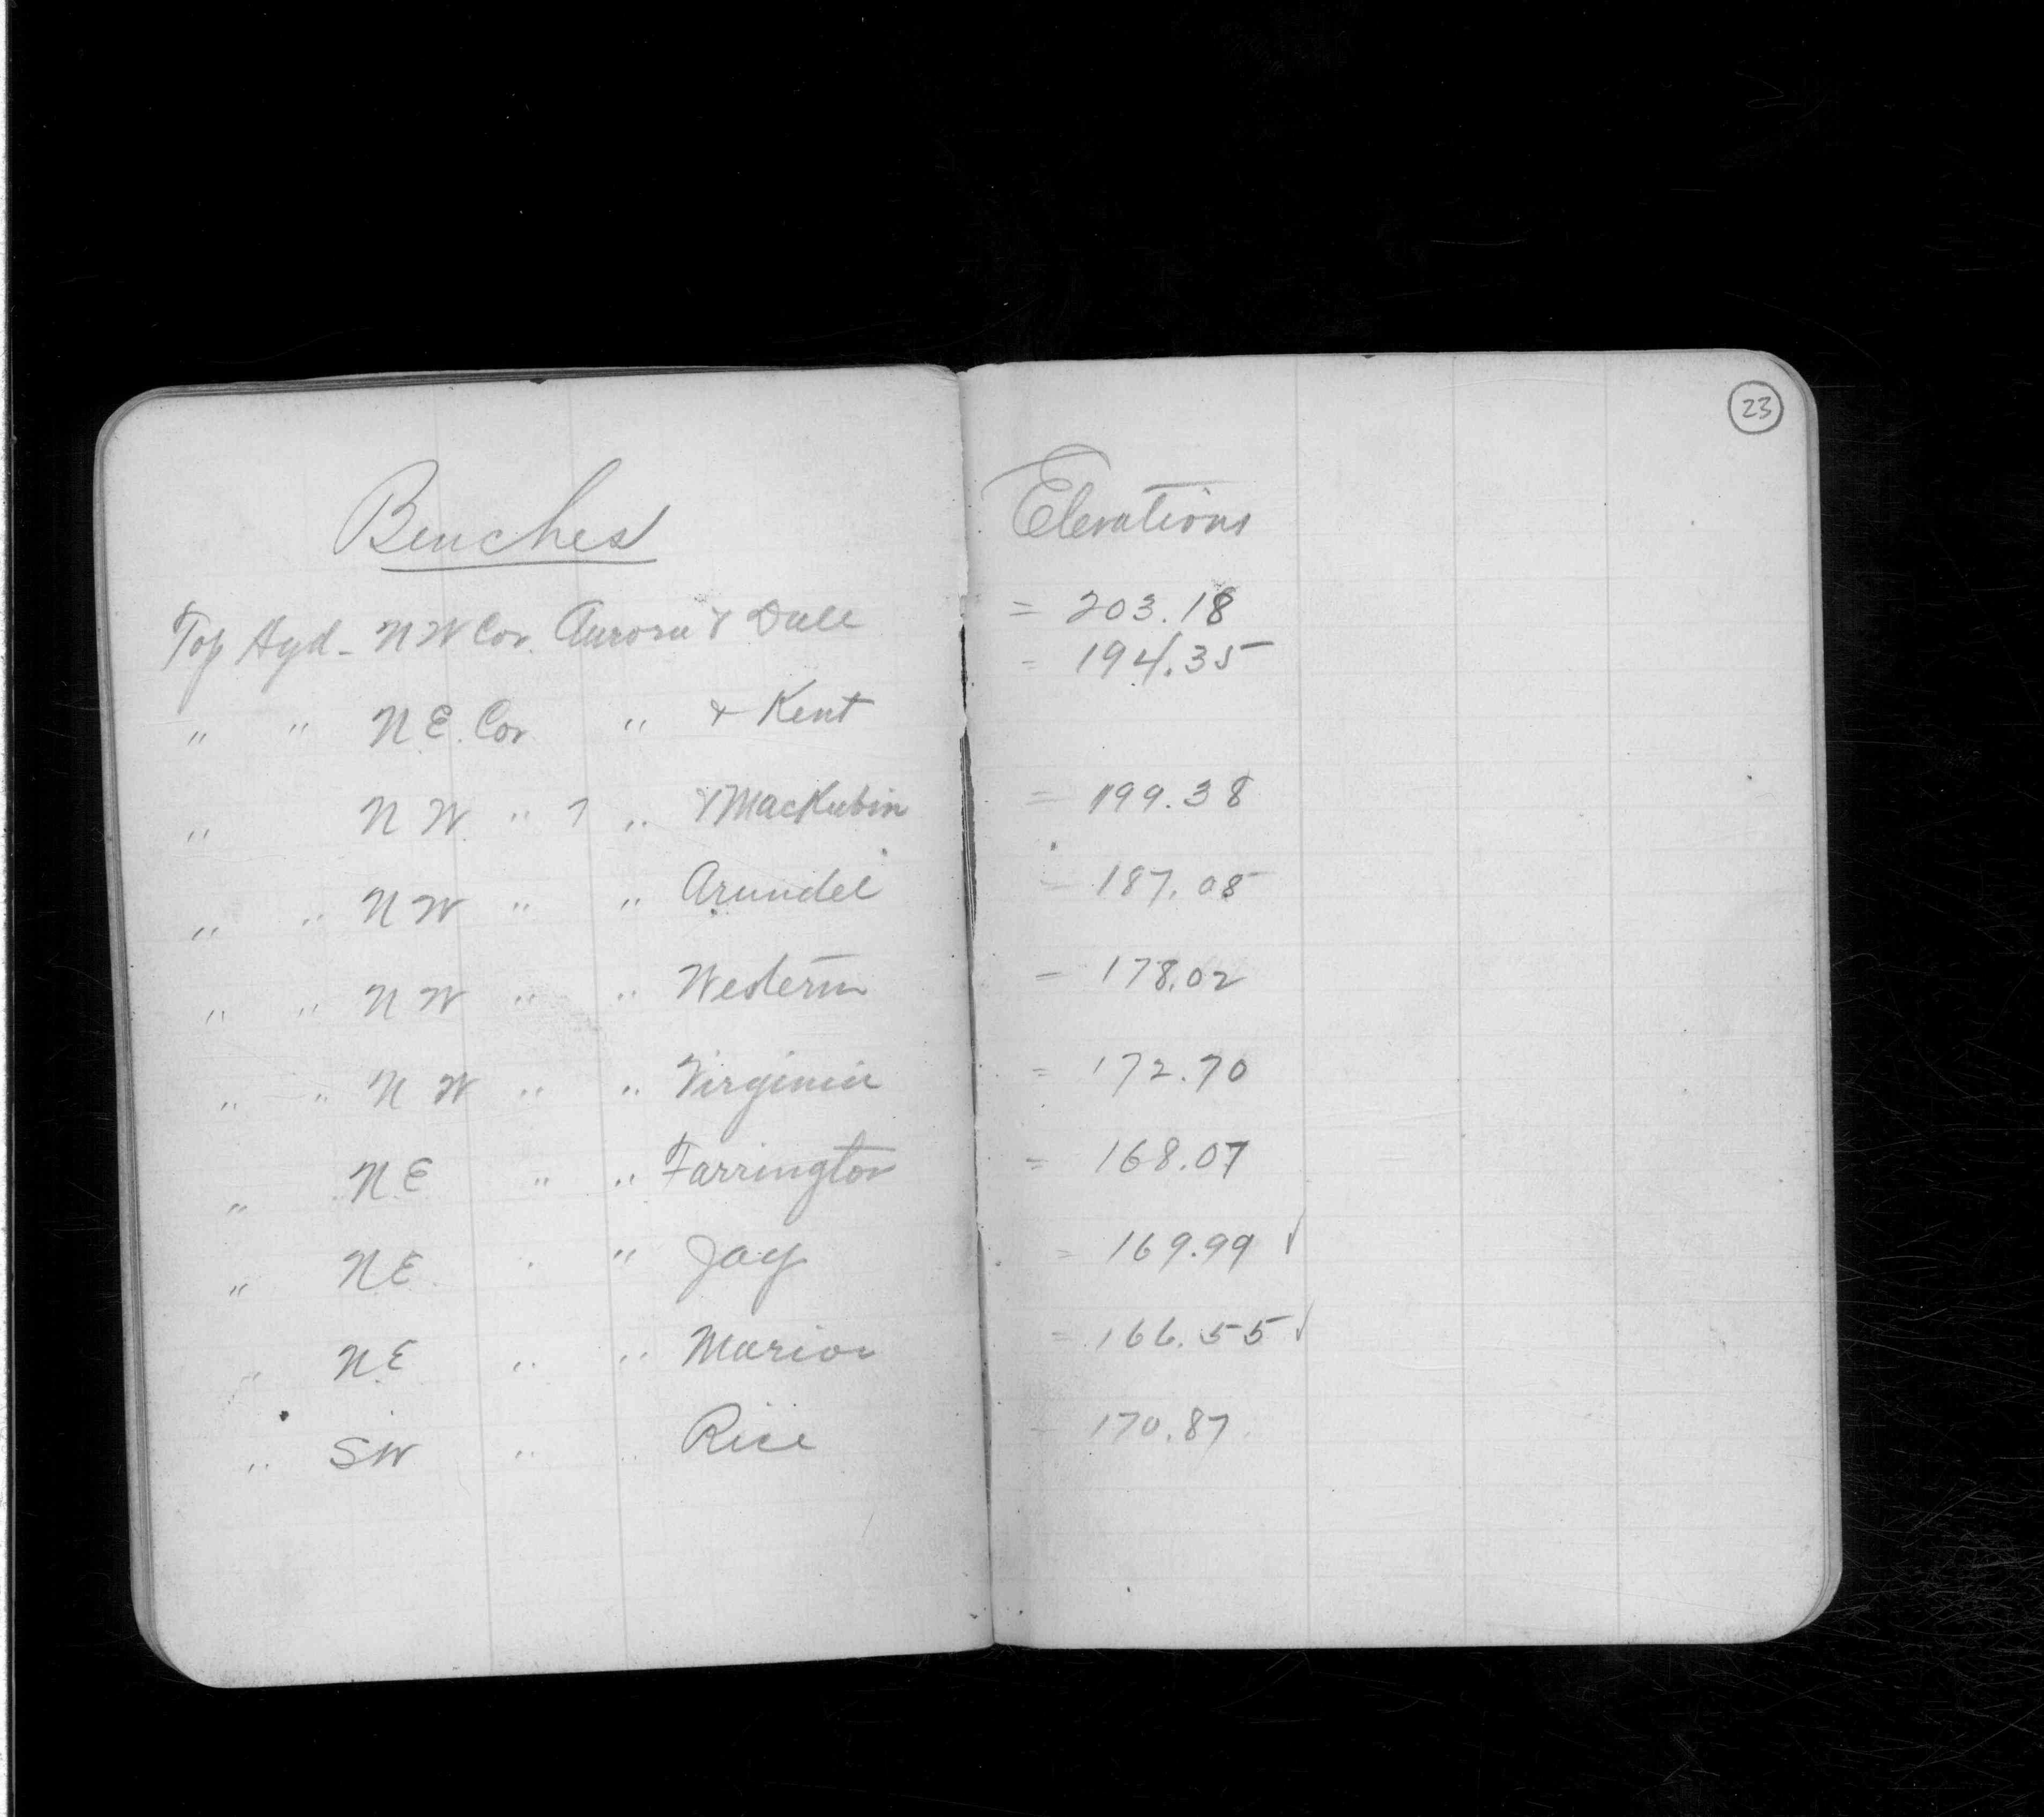 23
Benches Elevations
Top Hyd - NW Cor. Aurora & Dale = 203.18
" " N.E. Cor " & Kent = 194.35
" NW. " 7 " & MacKubin = 199.38
" " NW " " Arundel = 187.08
" " NW " " Western = 178.02
" " NW " " Virginia = 172.70
" N.E " " Farrington = 168.07
" N.E. " " Jay = 169.99 ✓
" N.E " " Marion = 166.55 ✓
" SW " " Rice = 170.87